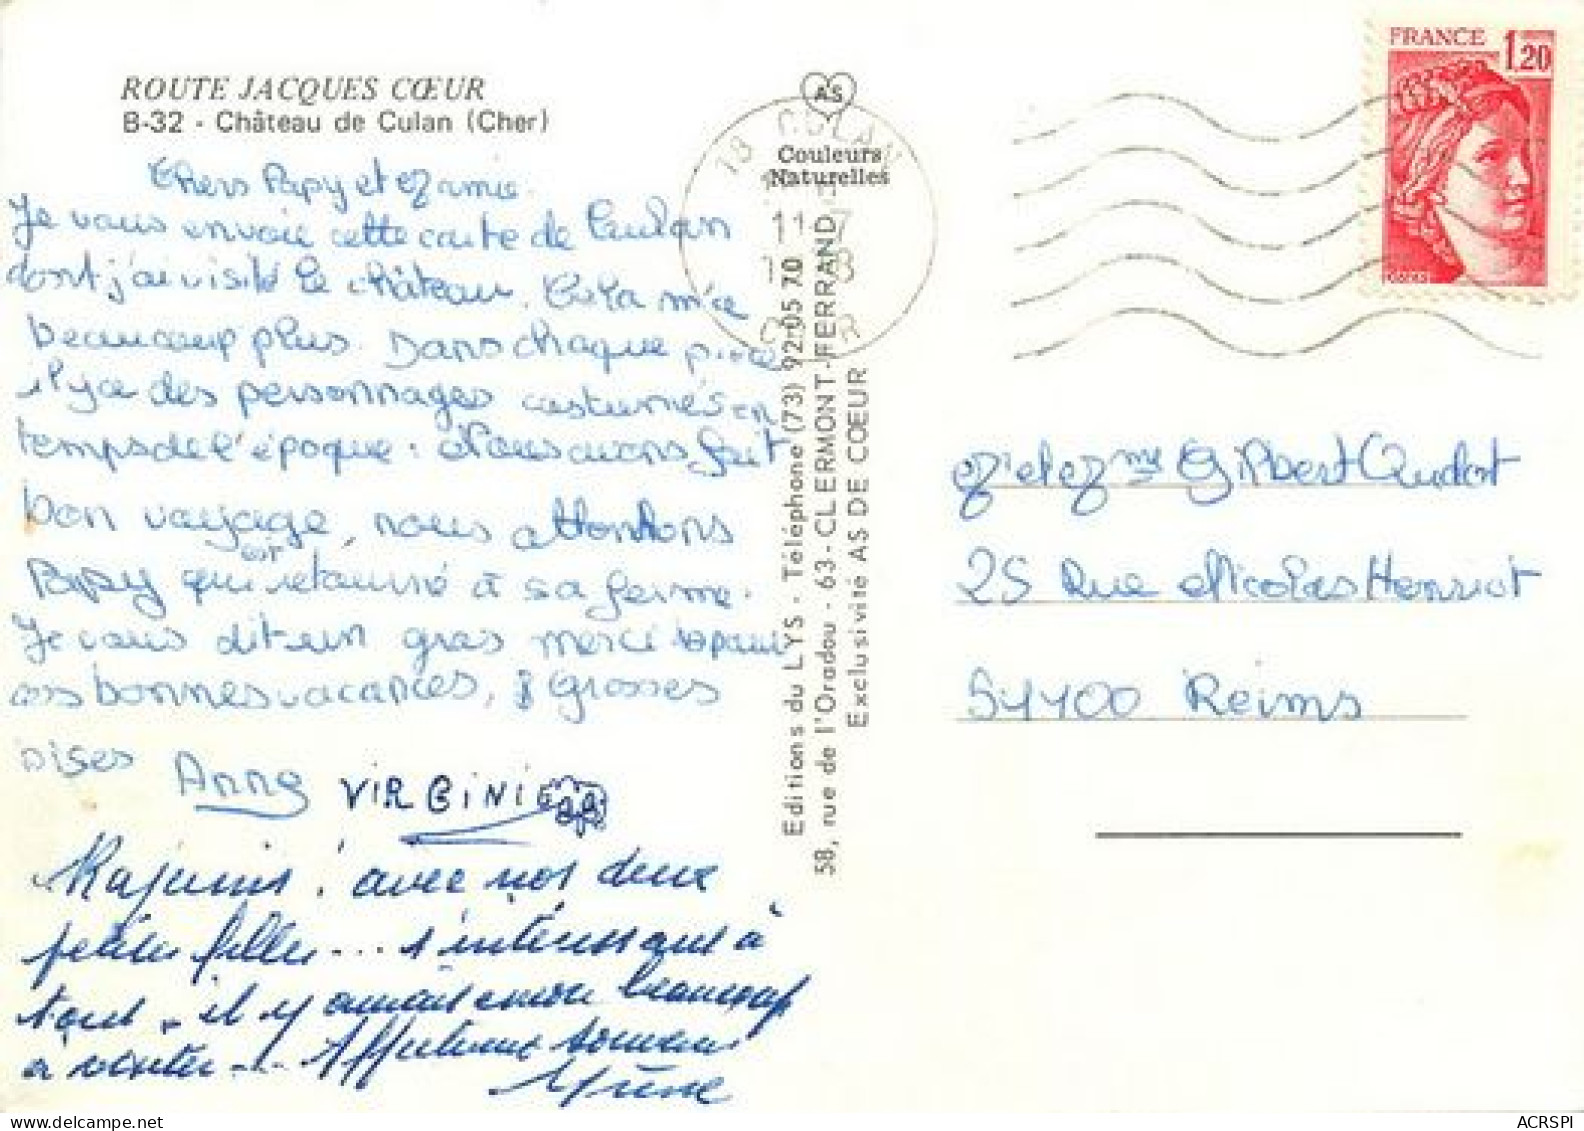 ROUTE JACQUES CŒUR
B-32 - Château de Culan (Cher)
Chers Papy et Mamie.
Je vous envoie cette carte de Culan
dont j'ai visité le château. Cela m'a
beaucoup plus. Dans chaque pièce
il y a des personnages costumés en
temps de l'époque. Nous avons fait
bon voyage, nous attontons
Papy qui est retourné à sa ferme.
Je vous dit un gros merci pour
ces bonnes vacances, grosses
bises Anne VIRGINIE
Rajeunis ! avec nos deux
petites filles... s'intéressant à
tout - il y aurait encore beaucoup
à visiter... Affectueux
AS
Couleurs
Naturelles
18 CULAN
11-7
CHER
Editions du LYS - Téléphone (73) 92-05 70
58, rue de l'Oradou - 63-CLERMONT-FERRAND
Exclusivité AS DE CŒUR
FRANCE 1,20
M et Mme Gilbert Audot
25 Rue Nicolas Henriot
51100 Reims
ACRSPI